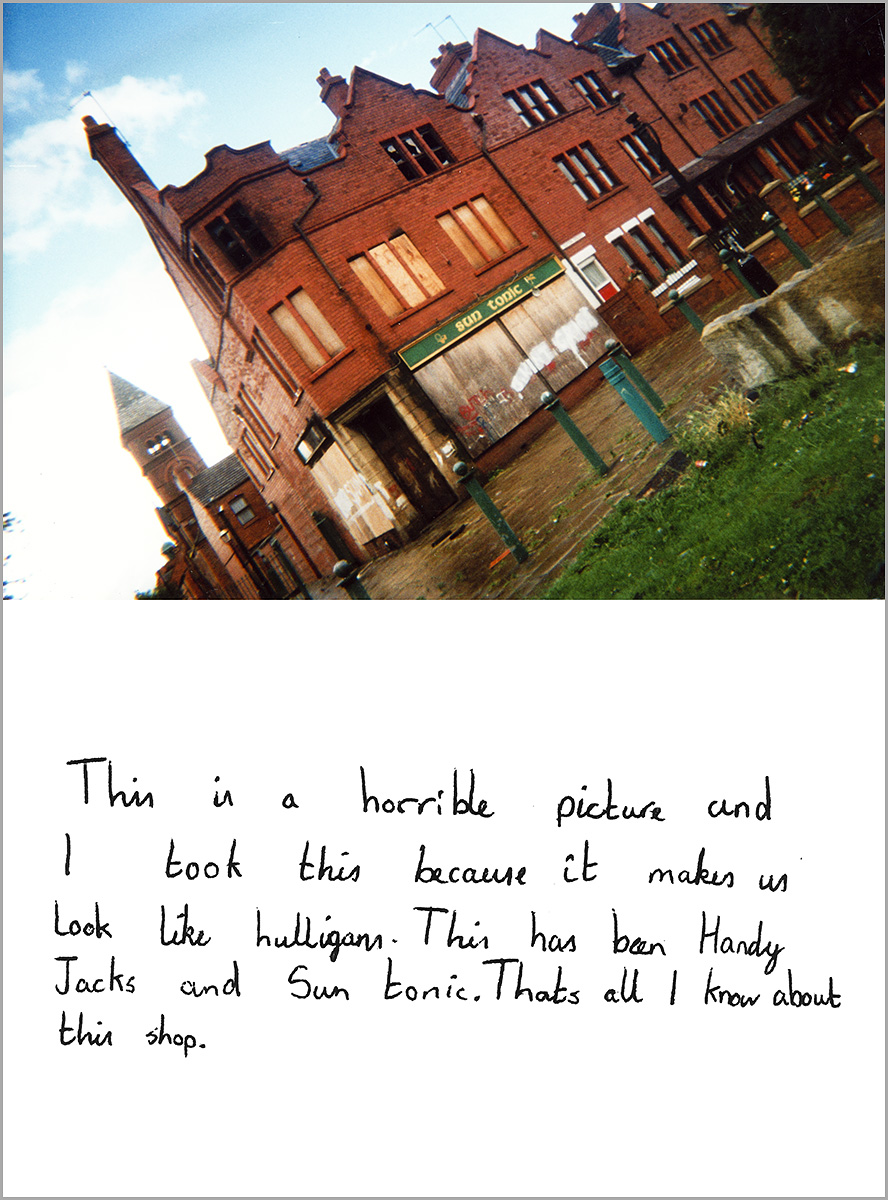 sun tonic
This is a horrible picture and
I took this because it makes us
Look like hulligans. This has been Handy
Jacks and Sun tonic. Thats all I know about
this shop.